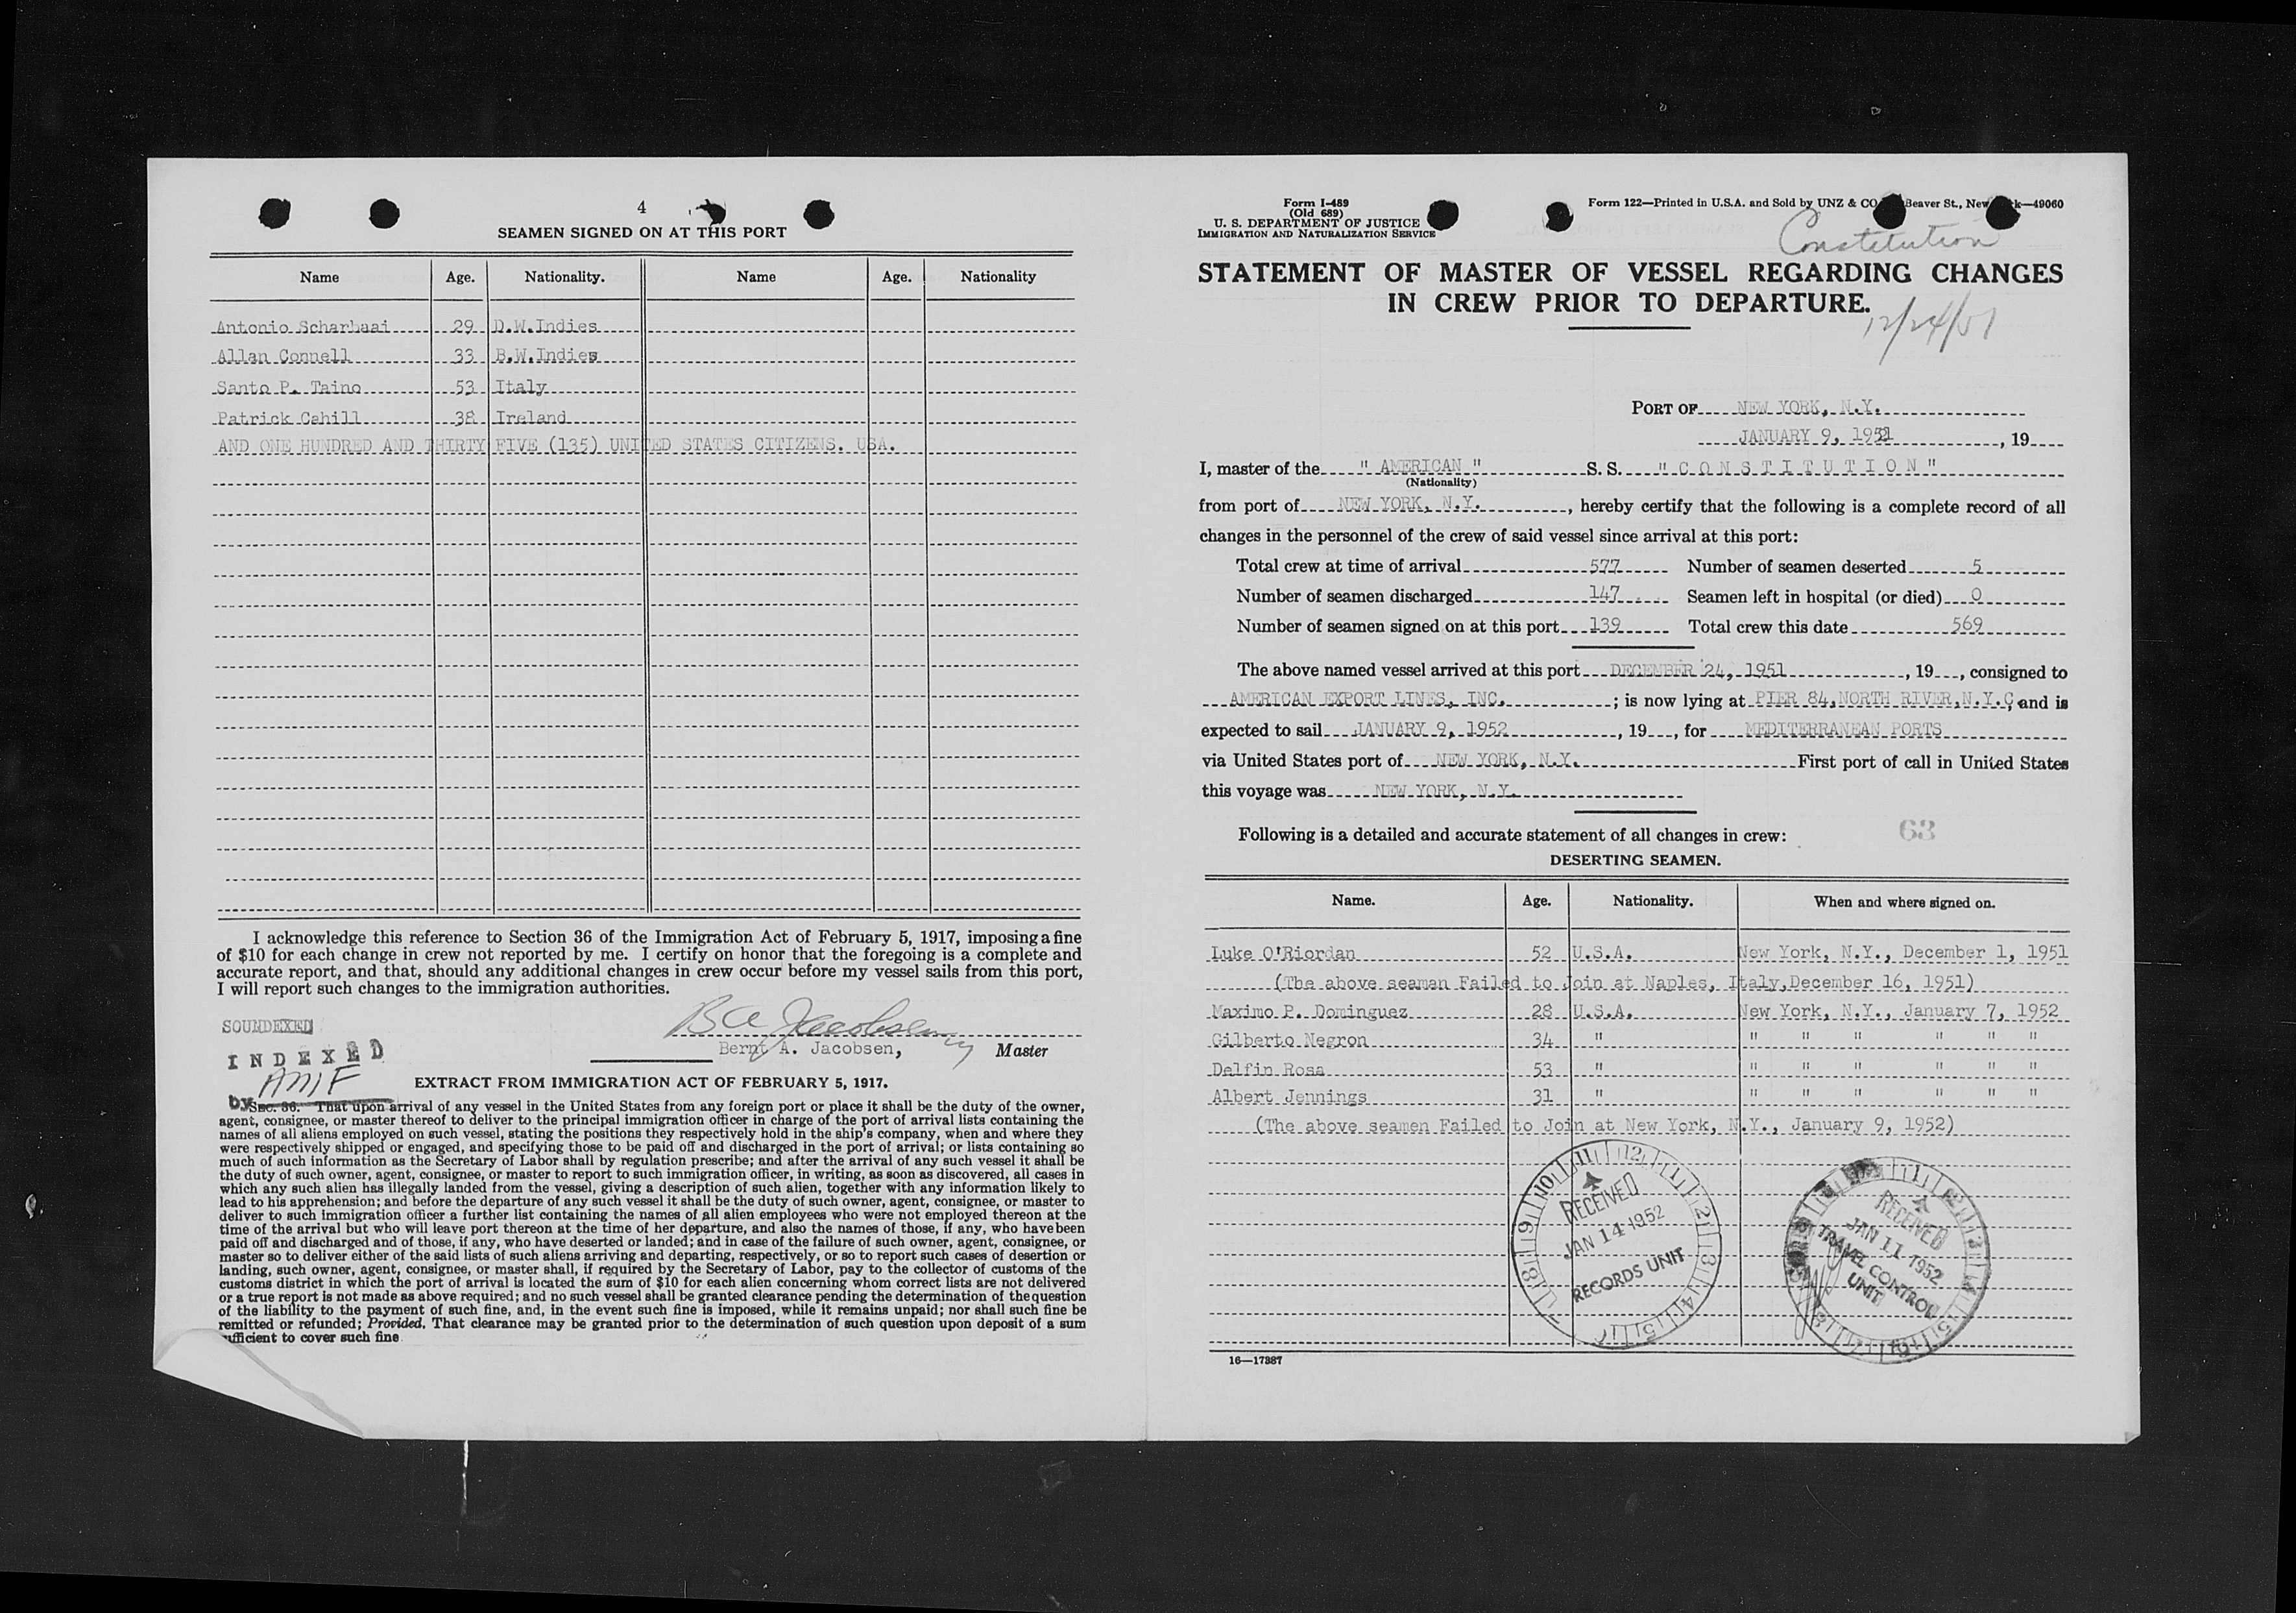 4
SEAMEN SIGNED ON AT THIS PORT
Name Age. Nationality. Name Age. Nationality
Antonio Scharbaai 29 D.W.Indies
Allan Connell 33 B.W.Indies
Santo P. Taino 53 Italy
Patrick Cahill 38 Ireland
AND ONE HUNDRED AND THIRTY FIVE (135) UNITED STATES CITIZENS. USA.
I acknowledge this reference to Section 36 of the Immigration Act of February 5, 1917, imposing a fine
of $10 for each change in crew not reported by me. I certify on honor that the foregoing is a complete and
accurate report, and that, should any additional changes in crew occur before my vessel sails from this port,
I will report such changes to the immigration authorities.
SOUNDEXED
B A Jacobsen
Bernt A. Jacobsen, Master
INDEXED
AMF
by
EXTRACT FROM IMMIGRATION ACT OF FEBRUARY 5, 1917.
Sec. 36. That upon arrival of any vessel in the United States from any foreign port or place it shall be the duty of the owner,
agent, consignee, or master thereof to deliver to the principal immigration officer in charge of the port of arrival lists containing the
names of all aliens employed on such vessel, stating the positions they respectively hold in the ship's company, when and where they
were respectively shipped or engaged, and specifying those to be paid off and discharged in the port of arrival; or lists containing so
much of such information as the Secretary of Labor shall by regulation prescribe; and after the arrival of any such vessel it shall be
the duty of such owner, agent, consignee, or master to report to such immigration officer, in writing, as soon as discovered, all cases in
which any such alien has illegally landed from the vessel, giving a description of such alien, together with any information likely to
lead to his apprehension; and before the departure of any such vessel it shall be the duty of such owner, agent, consignee, or master to
deliver to such immigration officer a further list containing the names of all alien employees who were not employed thereon at the
time of the arrival but who will leave port thereon at the time of her departure, and also the names of those, if any, who have been
paid off and discharged and of those, if any, who have deserted or landed; and in case of the failure of such owner, agent, consignee, or
master so to deliver either of the said lists of such aliens arriving and departing, respectively, or so to report such cases of desertion or
landing, such owner, agent, consignee, or master shall, if required by the Secretary of Labor, pay to the collector of customs of the
customs district in which the port of arrival is located the sum of $10 for each alien concerning whom correct lists are not delivered
or a true report is not made as above required; and no such vessel shall be granted clearance pending the determination of the question
of the liability to the payment of such fine, and, in the event such fine is imposed, while it remains unpaid; nor shall such fine be
remitted or refunded; Provided, That clearance may be granted prior to the determination of such question upon deposit of a sum
sufficient to cover such fine
Form I-489
(Old 689)
U. S. DEPARTMENT OF JUSTICE
IMMIGRATION AND NATURALIZATION SERVICE
Form 122—Printed in U.S.A. and Sold by UNZ & CO Beaver St., New k—49060
Constitution
STATEMENT OF MASTER OF VESSEL REGARDING CHANGES
IN CREW PRIOR TO DEPARTURE.
12/24/51
PORT OF NEW YORK, N.Y.
JANUARY 9, 1952, 19
I, master of the " AMERICAN " S. S. " C O N S T I T U T I O N "
(Nationality)
from port of NEW YORK, N.Y., hereby certify that the following is a complete record of all
changes in the personnel of the crew of said vessel since arrival at this port:
Total crew at time of arrival 577 Number of seamen deserted 5
Number of seamen discharged 147 Seamen left in hospital (or died) 0
Number of seamen signed on at this port 139 Total crew this date 569
The above named vessel arrived at this port DECEMBER 24, 1951, 19, consigned to
AMERICAN EXPORT LINES, INC.; is now lying at PIER 84, NORTH RIVER, N.Y.C, and is
expected to sail JANUARY 9, 1952, 19, for MEDITERRANEAN PORTS
via United States port of NEW YORK, N.Y. First port of call in United States
this voyage was NEW YORK, N.Y.
Following is a detailed and accurate statement of all changes in crew: 63
DESERTING SEAMEN.
Name. Age. Nationality. When and where signed on.
Luke O'Riordan 52 U.S.A. New York, N.Y., December 1, 1951
(The above seaman Failed to Join at Naples, Italy, December 16, 1951)
Maximo P. Dominguez 28 U.S.A. New York, N.Y., January 7, 1952
Gilberto Negron 34 " " " " " " "
Delfin Rosa 53 " " " " " " "
Albert Jennings 31 " " " " " " "
(The above seamen Failed to Join at New York, N.Y., January 9, 1952)
RECEIVED
JAN 14 1952
RECORDS UNIT
RECEIVED
JAN 11 1952
TRAVEL CONTROL
UNIT
16—17387